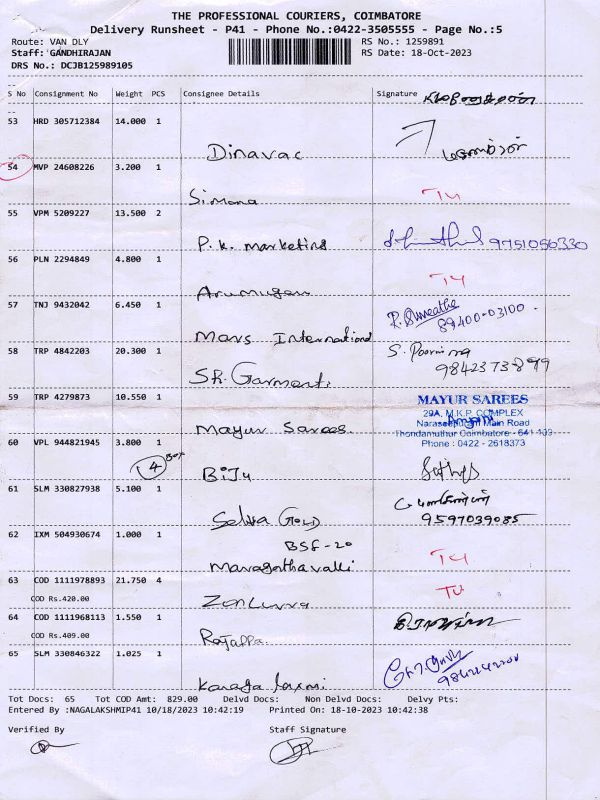 THE PROFESSIONAL COURIERS, COIMBATORE
Delivery Runsheet - P41 - Phone No.:0422-3505555 - Page No.:5
Route: VAN DLY RS No.: 1259891
Staff: GANDHIRAJAN RS Date: 18-Oct-2023
DRS No.: DCJB125989105
S No Consignment No Weight PCS Consignee Details Signature
53 HRD 305712384 14.000 1
Dinavac
54 MVP 24608226 3.200 1
Simona
55 VPM 5209227 13.500 2
P.K. marketing 9751056330
56 PLN 2294849 4.800 1
Arumugam
57 TNJ 9432042 6.450 1
Mars International 89400-03100
58 TRP 4842203 20.300 1 S. Poornima
SK. Garments 9842373899
59 TRP 4279873 10.550 1 MAYUR SAREES
29A, M.K.P. COMPLEX
Mayur Sarees. Naraseepuram Main Road
Thondamuthur Coimbatore - 641 109
60 VPL 944821945 3.800 1 Phone : 0422 - 2618373
4 Box BiJu
61 SLM 330827938 5.100 1
Selva Gold 9597039085
62 IXM 504930674 1.000 1 BSF-20
Maragathavalli
63 COD 1111978893 21.750 4
COD Rs.420.00
64 COD 1111968113 1.550 1
COD Rs.409.00 Rajappa.
65 SLM 330846322 1.025 1
Kanaga laxmi
Tot Docs: 65 Tot COD Amt: 829.00 Delvd Docs: Non Delvd Docs: Delvy Pts:
Entered By :NAGALAKSHMIP41 10/18/2023 10:42:19 Printed On: 18-10-2023 10:42:38
Verified By Staff Signature